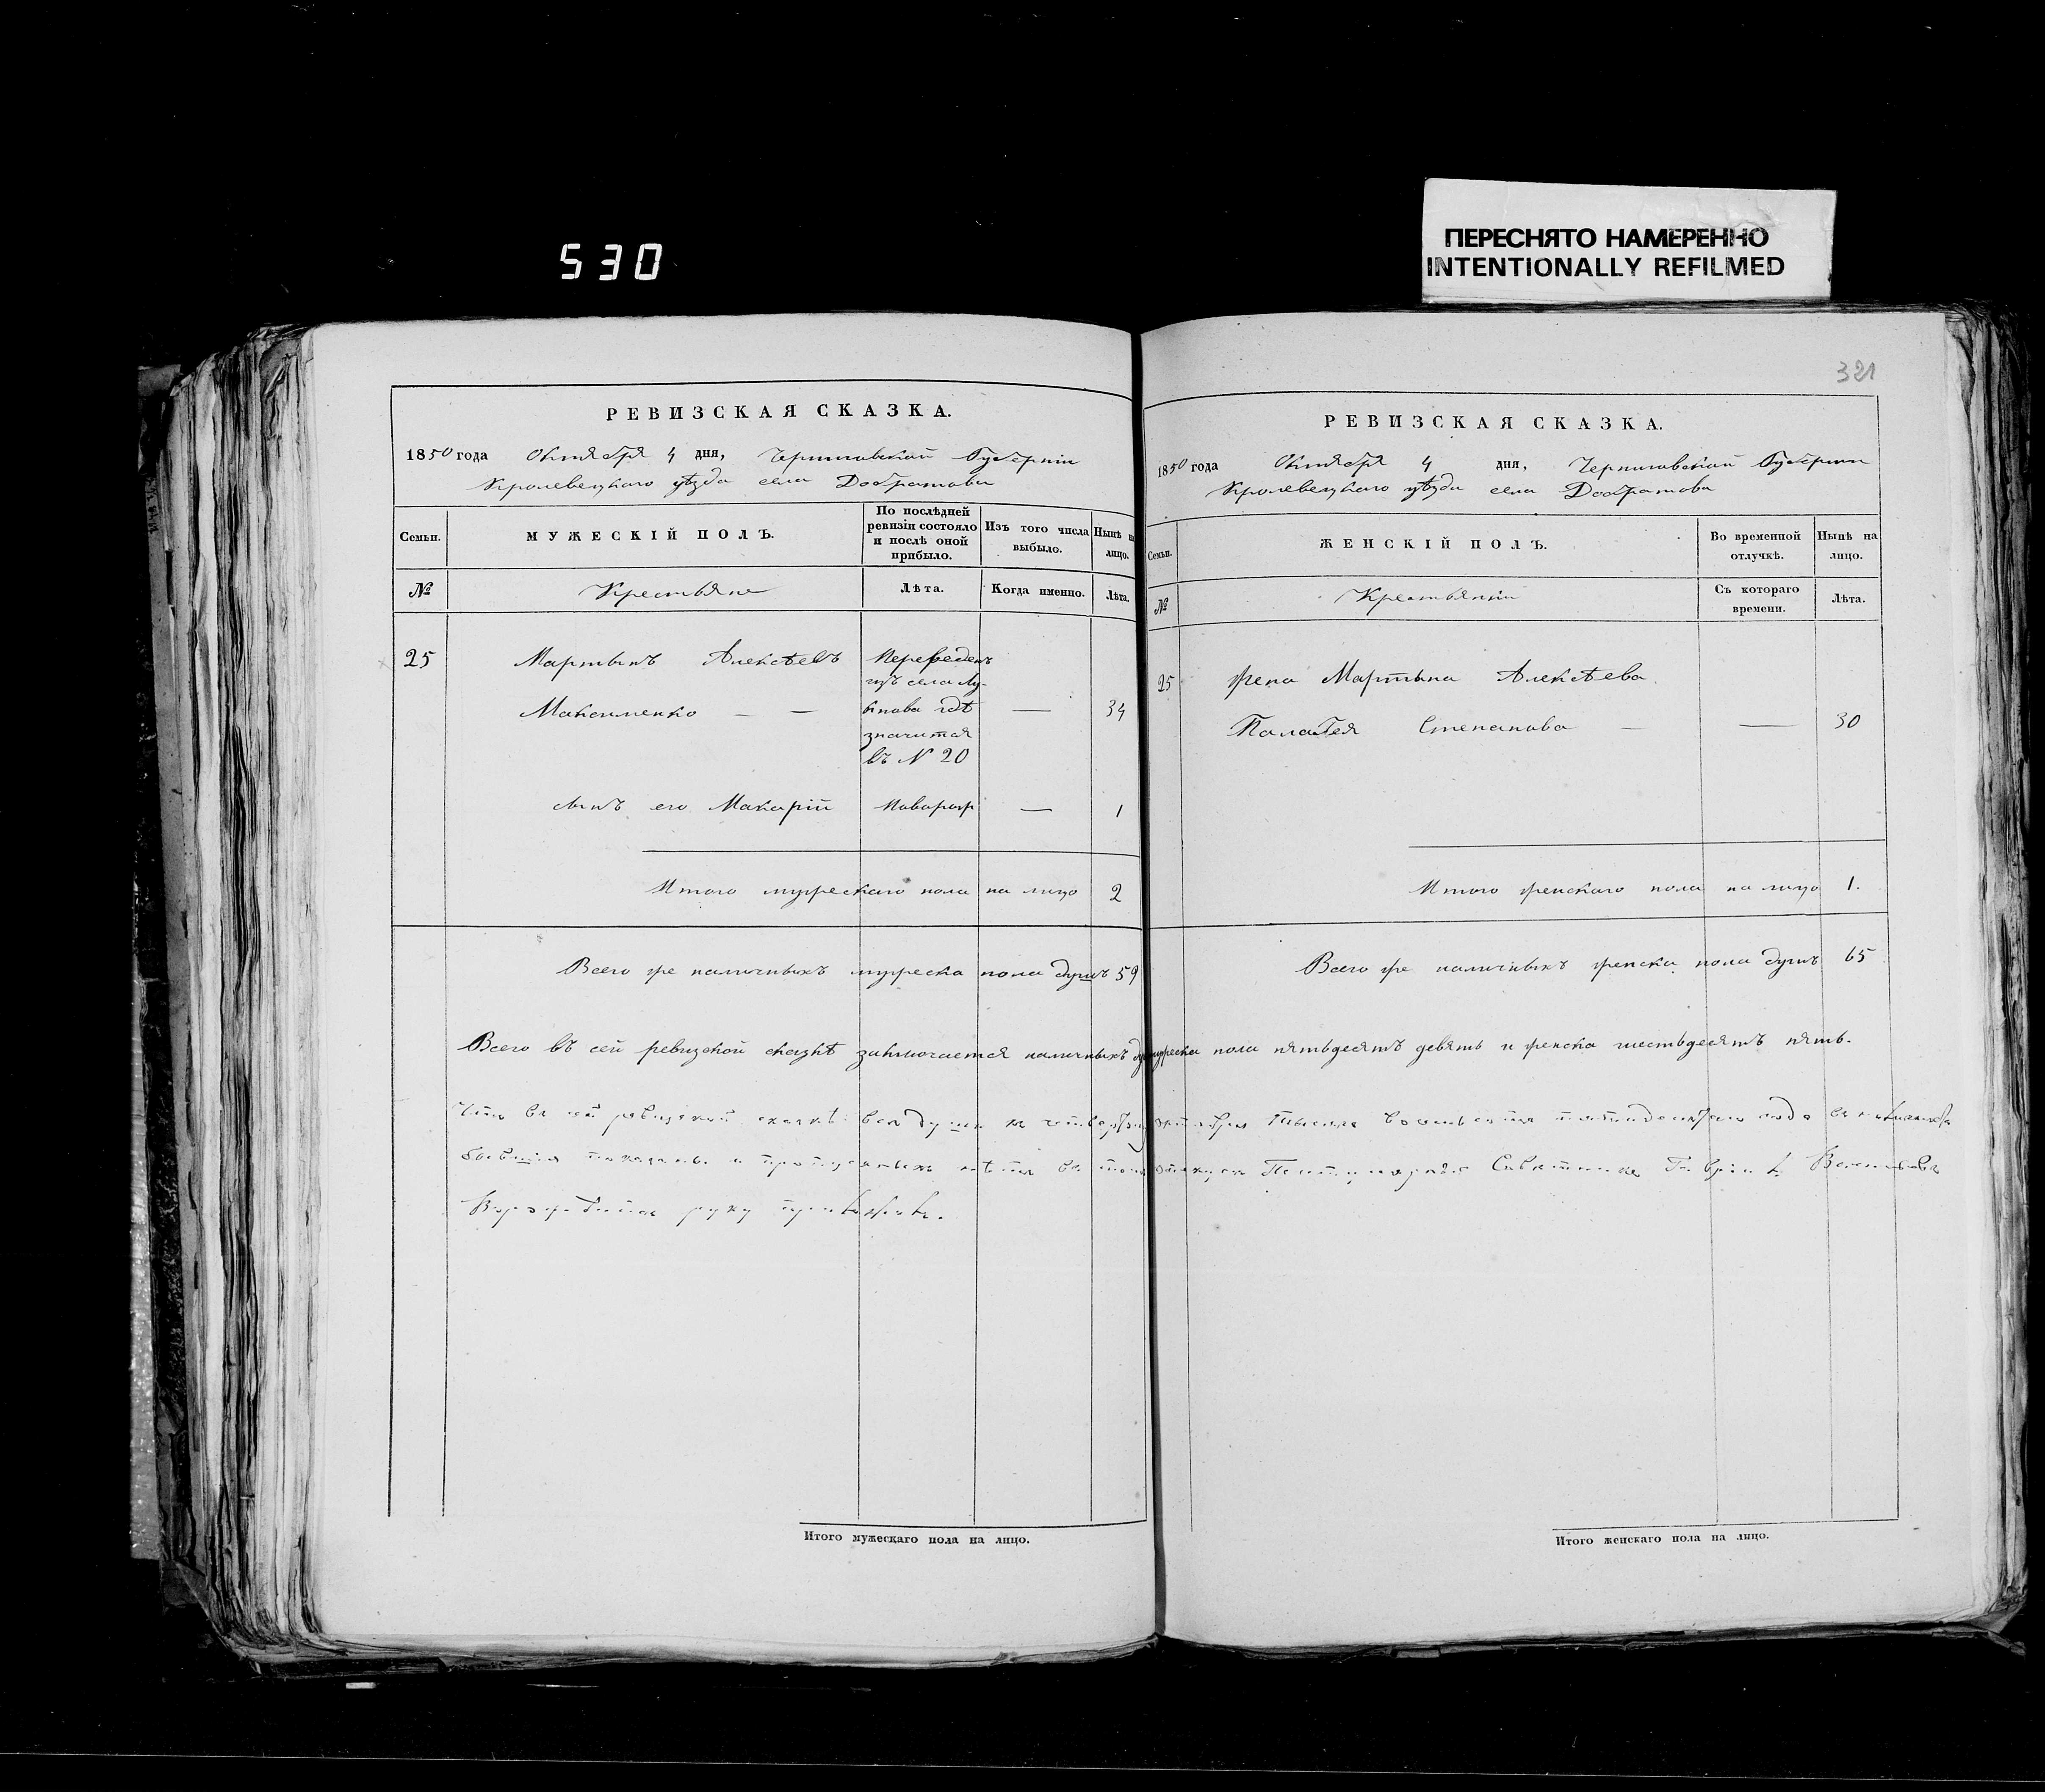 530
ПЕРЕСНЯТО НАМЕРЕННО
INTENTIONALLY REFILMED
РЕВИЗСКАЯ СКАЗКА.
1850 года Октября 4 дня, Черниговской Губерніи
Кролевецкаго уѣзда села Добратова
Семьи.
МУЖЕСКІЙ ПОЛЪ.
По послѣдней
ревизіи состояло
и послѣ оной
прибыло.
Изъ того числа
выбыло.
Нынѣ на
лицо.
№
Крестьяне
Лѣта.
Когда именно.
Лѣта.
25
Мартынъ Алексѣевъ
Максименко — —
Переведенъ
изъ села Лу-
кнова гдѣ
значится
въ N 20
—
34
сынъ его Макарій
Новорож
—
1
Итого мужескаго пола на лицо 2
Всего же наличныхъ мужеска пола душъ 59
321
РЕВИЗСКАЯ СКАЗКА.
1850 года Октября 4 дня, Черниговской Губерніи
Кролевецкаго уѣзда села Добратова
Семьи.
ЖЕНСКІЙ ПОЛЪ.
Во временной
отлучкѣ.
Нынѣ на
лицо.
№
Крестьянки
Съ котораго
времени.
Лѣта.
25
жена Мартына Алексѣева
Палагея Степанова — — 30
Итого женскаго пола на лицо 1.
Всего же наличныхъ женска пола душъ 65
Всего въ сей ревизской сказкѣ заключается наличныхъ мужеска пола пятьдесятъ девять и женска шестьдесятъ пять.
Что въ сей ревизской сказкѣ все души къ тысяча восемьсотъ пятидесятаго года
показаны и пропущенныхъ нѣтъ въ томъ Советникъ Гавріилъ
руку приложилъ.
Итого мужескаго пола на лицо.
Итого женскаго пола на лицо.